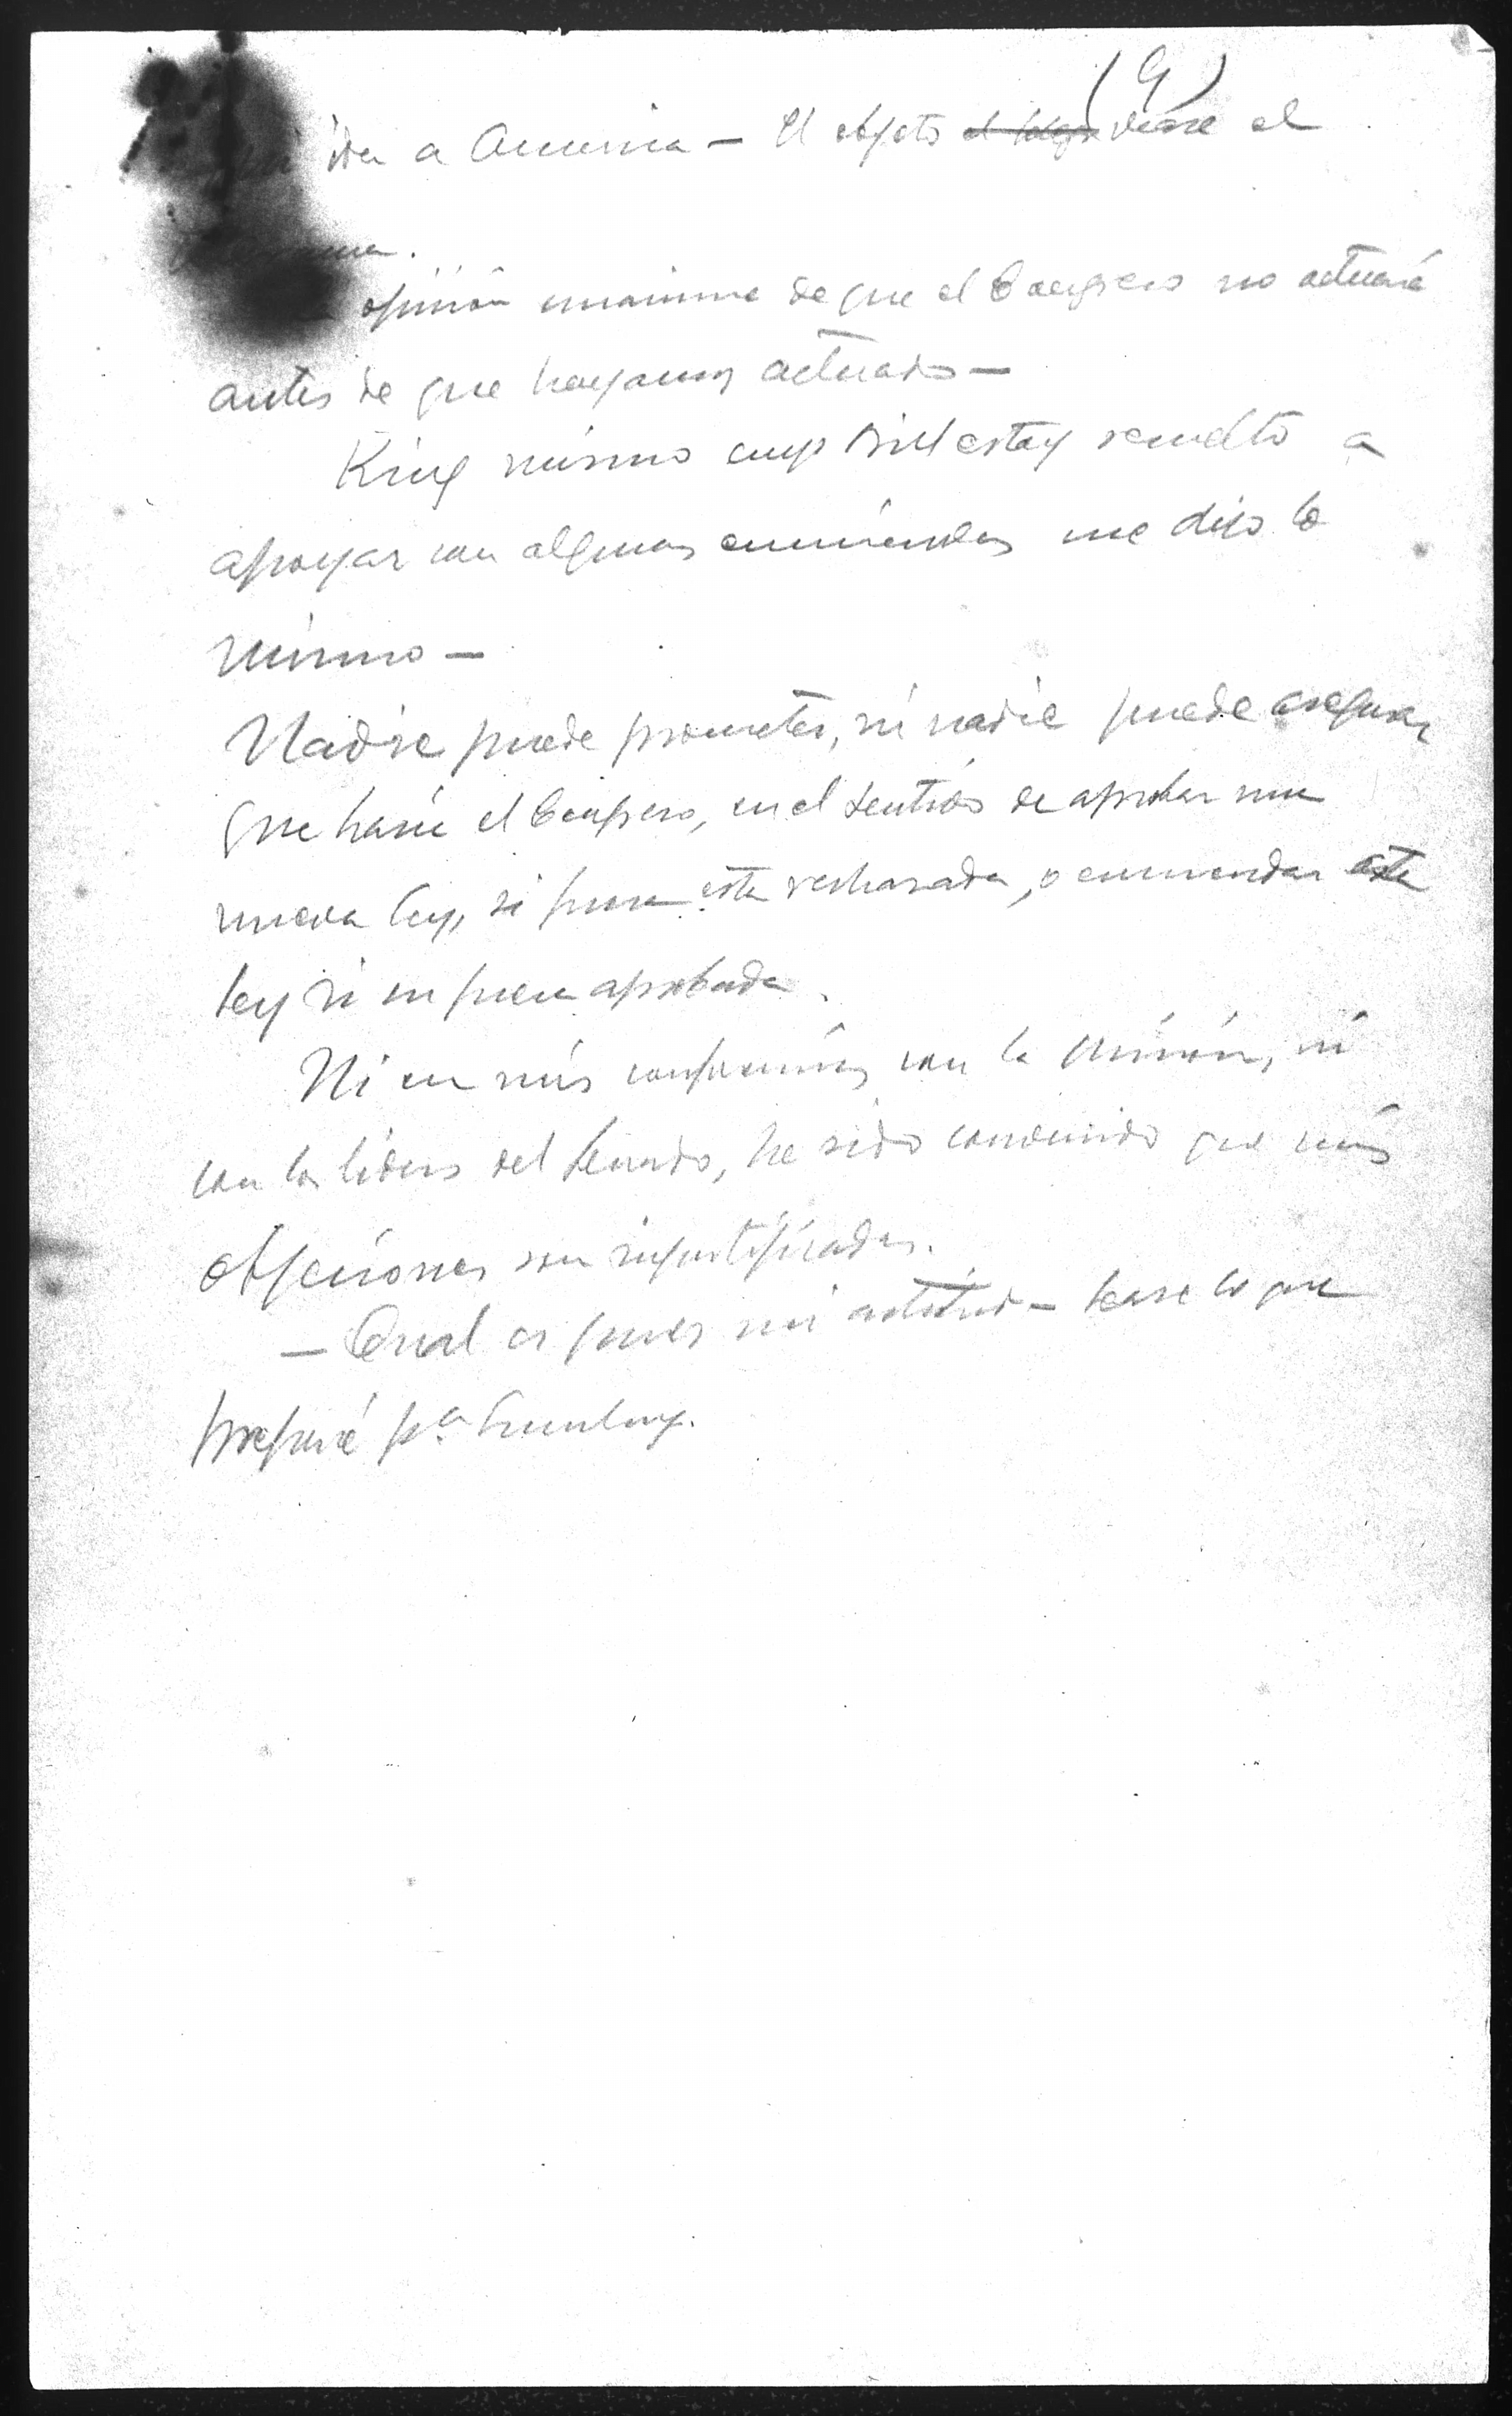 (9)
ida a America — El objeto véase el
opinión unánime de que el Congreso no actuará
antes de que hayamos actuado —
King mismo cuyo Bill estoy resuelto a
apoyar con algunas enmiendas me dijo lo
mismo —
Nadie puede prometer, ni nadie puede asegurar
que haría el Congreso, en el sentido de aprobar una
nueva ley, si fuera esta rechazada, o enmendar esta
ley si fuera aprobada.
Ni en mis con la Misión, ni
con los líderes del Senado, he sido convencido que mis
objeciones son injustificadas.
— Cual es pues mi actitud — lease lo que
preparé pª